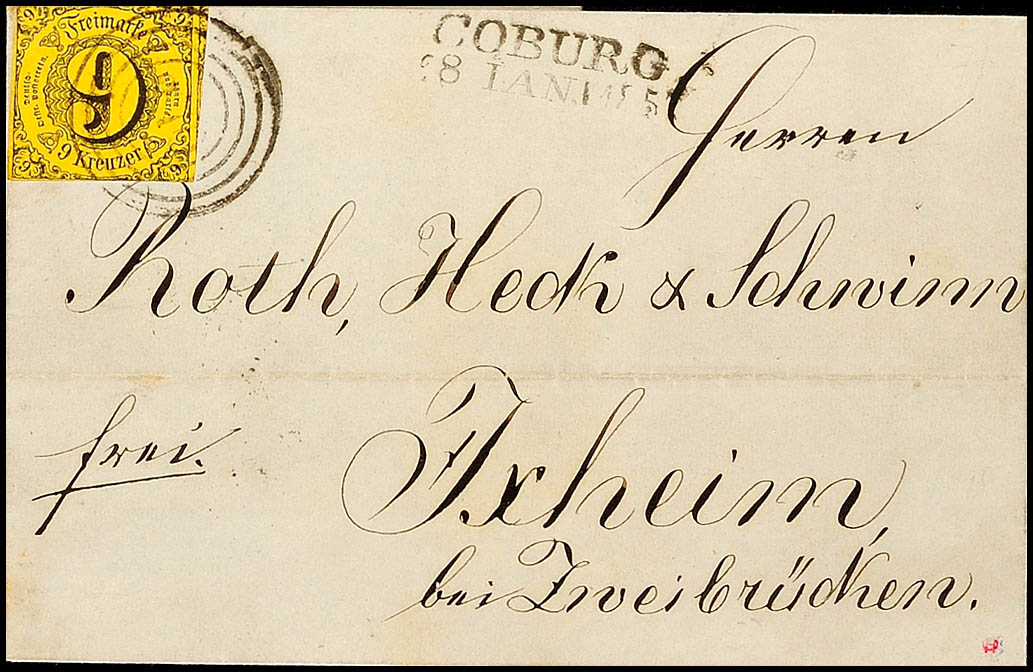 Freimarke
9
9 Kreuzer
COBURG
Herren
Roth, Heck & Schwinn
frei.
Ixheim,
bei Zweibrücken.